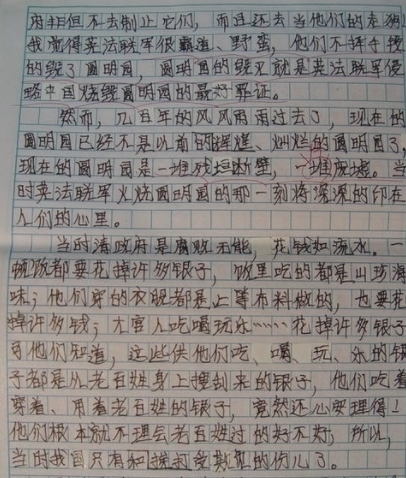 府非但不去制止它们，而还还去当他们的走狗！
我觉得英法联军很霸道、野蛮，他们不择手段
的毁了圆明园，圆明园的毁灭就是英法联军侵
略中国烧毁圆明园的最好罪证。
然而，几百年的风风雨雨过去了，现在的
圆明园已经不是以前的辉煌、灿烂的圆明园了，
现在的圆明园是一堆残垣断壁，一堆废墟。当
时英法联军火烧圆明园的那一刻将深深的印在
人们的心里。
当时清政府是腐败无能，花钱如流水。一
顿饭都要花掉许多银子，饭里吃的都是山珍海
味；他们穿的衣服都是上等布料做的，也要花
掉许多钱；大官人吃喝玩水……花掉许多银子
可他们知道，这些供他们吃、喝、玩、乐的银
子都是从老百姓身上搜刮来的银子，他们吃着
穿着、用着老百姓的银子，竟然还心安理得！
他们根本就不理会老百姓过的好不好，所以，
当时我国只有如挨打受欺犯的份儿了。